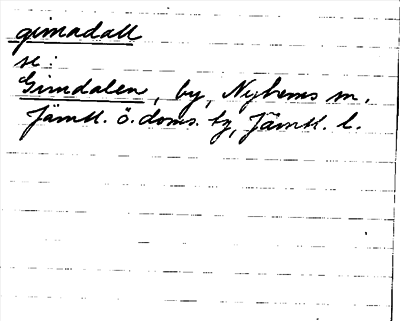 gimadall
se:
Gimdalen, by, Nyhems sn,
Jämtl. ö. doms. tg, Jämtl. l.